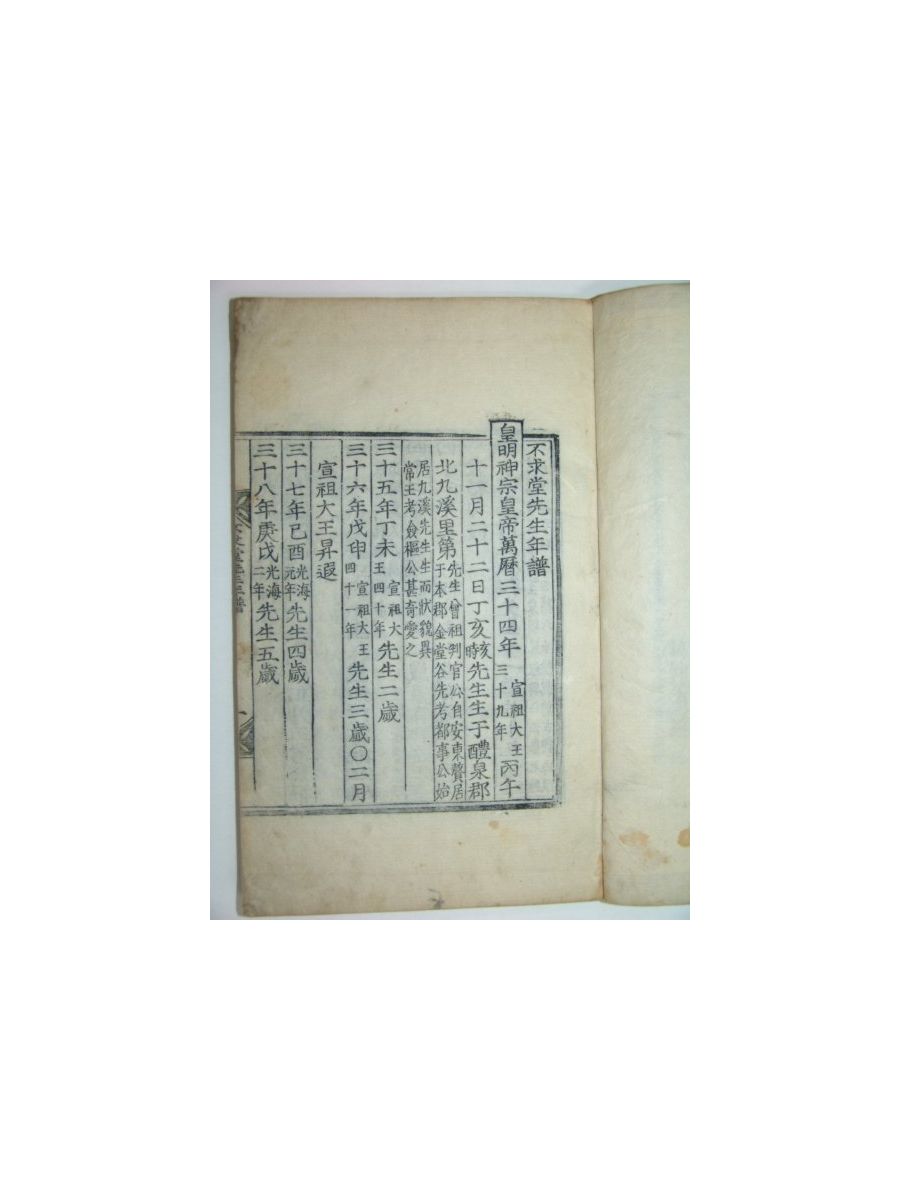 不求堂先生年譜
皇明神宗皇帝萬曆三十四年宣祖大王三十九年丙午
十一月二十二日丁亥亥時先生生于醴泉郡
北九溪里第先生曾祖判官公自安東贅居于本郡金堂谷先考都事公始
居九溪先生生而狀貌異常王考僉樞公甚奇愛之
三十五年丁未宣祖大王四十年先生二歲
三十六年戊申宣祖大王四十一年先生三歲○二月
宣祖大王昇遐
三十七年己酉光海元年先生四歲
三十八年庚戌光海二年先生五歲